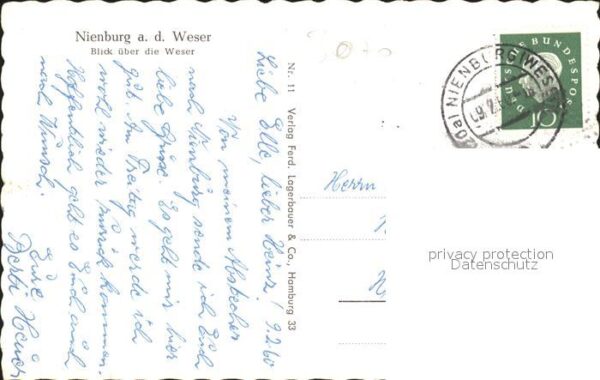 Nienburg a. d. Weser
Blick über die Weser
Liebe Elle, lieber Heinz! 9.2.60
Von meinem Abstecher
nach Nienburg sende ich Euch
liebe Grüsse. Es geht mir hier
gut. Am Freitag werde ich
wohl wieder zurück kommen.
Hoffentlich geht es Euch auch
nach Wunsch.
Eure
Berta
Nr. 11 Verlag Ferd. Lagerbauer & Co., Hamburg 33
DEUTSCHE BUNDESPOST
10
(20a) NIENBURG (WESER)
Herrn
privacy protection
Datenschutz